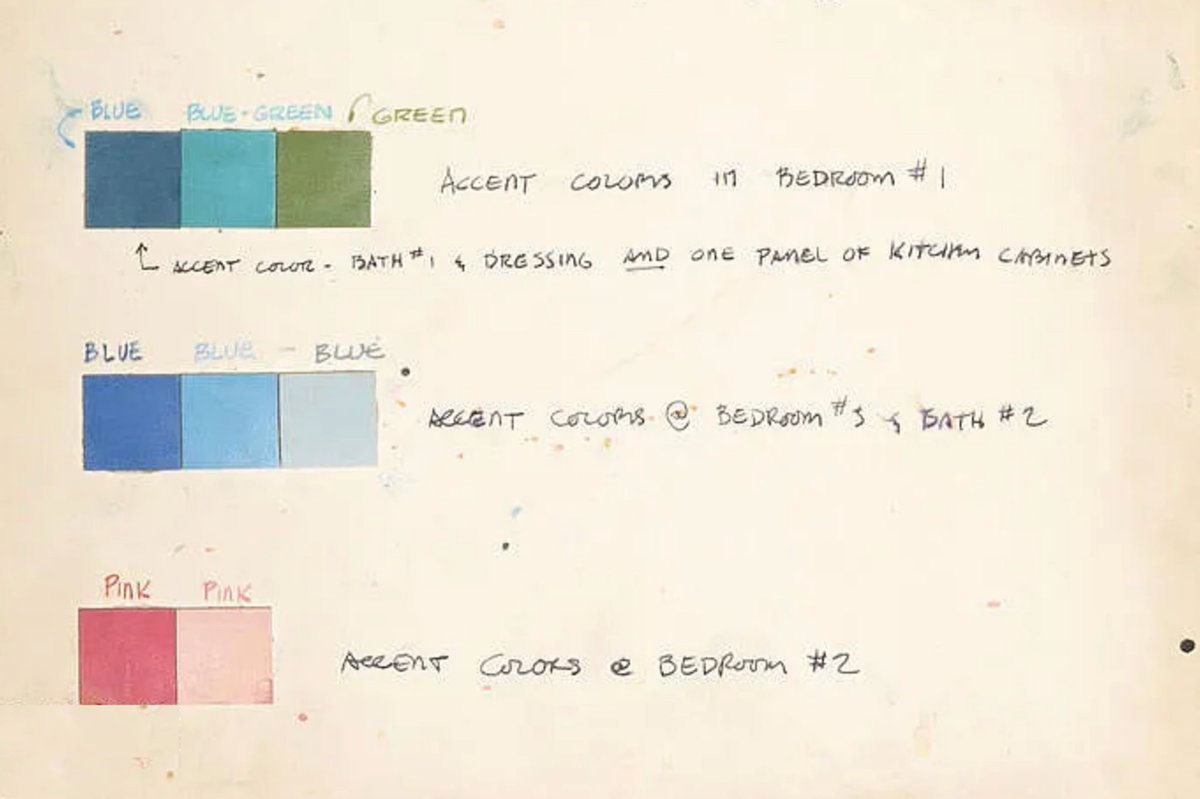 BLUE BLUE-GREEN GREEN
ACCENT COLORS IN BEDROOM #1
ACCENT COLOR - BATH #1 & DRESSING AND ONE PANEL OF KITCHEN CABINETS
BLUE BLUE - BLUE
ACCENT COLORS @ BEDROOM #3 & BATH #2
PINK PINK
ACCENT COLORS @ BEDROOM #2